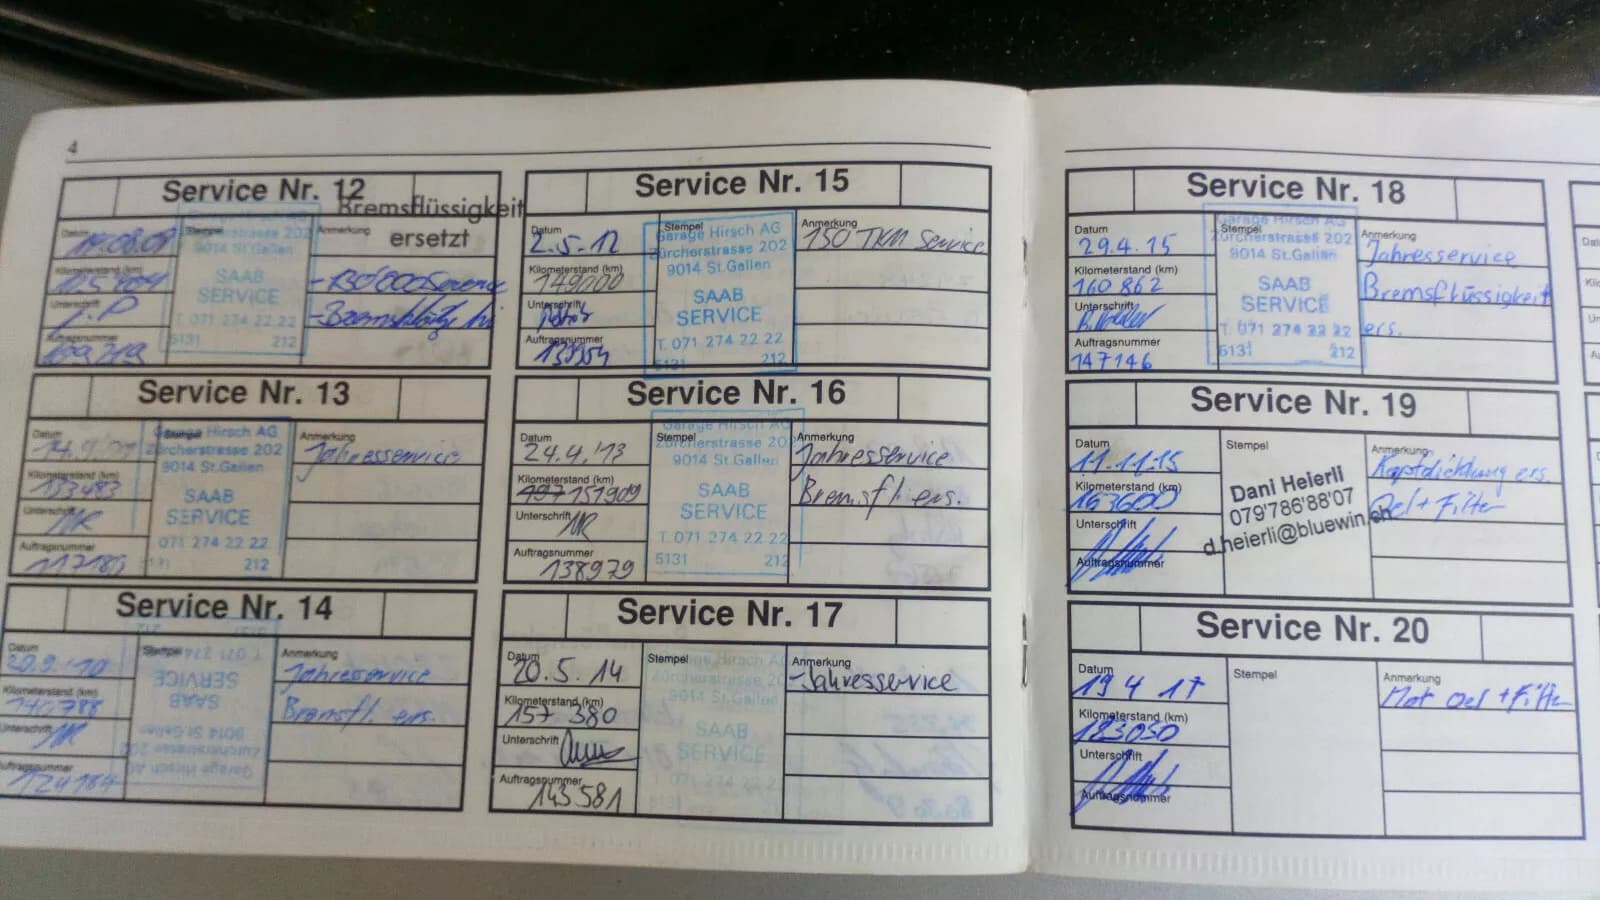 4
Service Nr. 12
Bremsflüssigkeit
ersetzt
Datum
Stempel
Anmerkung
Garage Hirsch AG
Zürcherstrasse 202
9014 St.Gallen
SAAB
SERVICE
T. 071 274 22 22
5131 212
Kilometerstand (km)
Unterschrift
J.P
Auftragsnummer
109219
Service Nr. 13
Datum
Stempel
Anmerkung
Jahresservice
Garage Hirsch AG
Zürcherstrasse 202
9014 St.Gallen
SAAB
SERVICE
071 274 22 22
5131 212
Kilometerstand (km)
133483
Unterschrift
MR
Auftragsnummer
Service Nr. 14
Datum
20.9.'10
Stempel
Anmerkung
Jahresservice
Bremsfl. ers.
Garage Hirsch AG
Zürcherstrasse 202
9014 St.Gallen
SAAB
SERVICE
T. 071 274
212
Kilometerstand (km)
Unterschrift
MR
Auftragsnummer
124184
Service Nr. 15
Datum
2.5.12
Stempel
Anmerkung
150 TKM Service
Garage Hirsch AG
Zürcherstrasse 202
9014 St.Gallen
SAAB
SERVICE
T. 071 274 22 22
5131 212
Kilometerstand (km)
149000
Unterschrift
Auftragsnummer
Service Nr. 16
Datum
24.4.'13
Stempel
Anmerkung
Jahresservice
Bremsfl ers.
Garage Hirsch AG
Zürcherstrasse 202
9014 St.Gallen
SAAB
SERVICE
T. 071 274 22 22
5131 212
Kilometerstand (km)
151909
Unterschrift
MR
Auftragsnummer
138979
Service Nr. 17
Datum
20.5.14
Stempel
Anmerkung
-Jahresservice
Garage Hirsch AG
Zürcherstrasse 202
9014 St.Gallen
SAAB
SERVICE
T. 071 274 22 22
5131 212
Kilometerstand (km)
157 380
Unterschrift
Auftragsnummer
143 581
Service Nr. 18
Datum
29.4.15
Stempel
Anmerkung
Jahresservice
Bremsflüssigkeit
ers.
Garage Hirsch AG
Zürcherstrasse 202
9014 St.Gallen
SAAB
SERVICE
T. 071 274 22 22
5131 212
Kilometerstand (km)
160 862
Unterschrift
Auftragsnummer
147146
Service Nr. 19
Datum
11.11.15
Stempel
Anmerkung
Kopfdichtung ers.
Oel + Filter
Dani Heierli
079'786'88'07
d.heierli@bluewin.ch
Kilometerstand (km)
163600
Unterschrift
Auftragsnummer
Service Nr. 20
Datum
19 4 17
Stempel
Anmerkung
Mot Oel + Filter
Kilometerstand (km)
183050
Unterschrift
Auftragsnummer